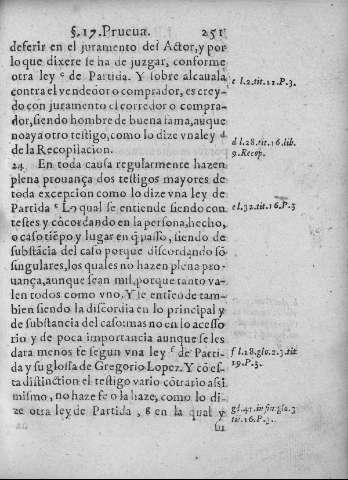 §.17. Prueua. 251
deferir en el juramento del Actor, y por
lo que dixere se ha de juzgar, conforme
otra ley c de Partida. Y sobre alcauala
c l.2.tit.11.P.3.
contra el vendedor o comprador, es crey-
do con juramento el corredor o compra-
dor, siendo hombre de buena fama, aunque
no aya otro testigo, como lo dize vna ley d
d l.28.tit.16.lib.
de la Recopilacion.
9.Recop.
24. En toda causa regularmente hazen
plena prouança dos testigos mayores de
toda excepcion como lo dize vna ley de
Partida e Lo qual se entiende siendo con
e l.32.tit.16.P.3
testes y cõcordando en la persona, hecho,
o caso tiẽpo y lugar en q̃ passo, siendo de
substãcia del caso porque discordando sõ
singulares, los quales no hazen plena pro-
uança, aunque sean mil, porque tanto va-
len todos como vno. Y se entiẽde tam-
bien siendo la discordia en lo principal y
de substancia del caso: mas no en lo acesso-
rio y de poca importancia aunque se les
dara menos fe segun vna ley f de Parti-
f l.28.glo.2.3.tit
da y su glossa de Gregorio Lopez. Y cõ es-
19.P.3.
ta distinction el testigo vario cõtrario assi
mismo, no haze fe o la haze, como lo di-
ze otra ley de Partida, g en la qual y
gl.41.in fin.glo.3
tit.16.P.3.
su